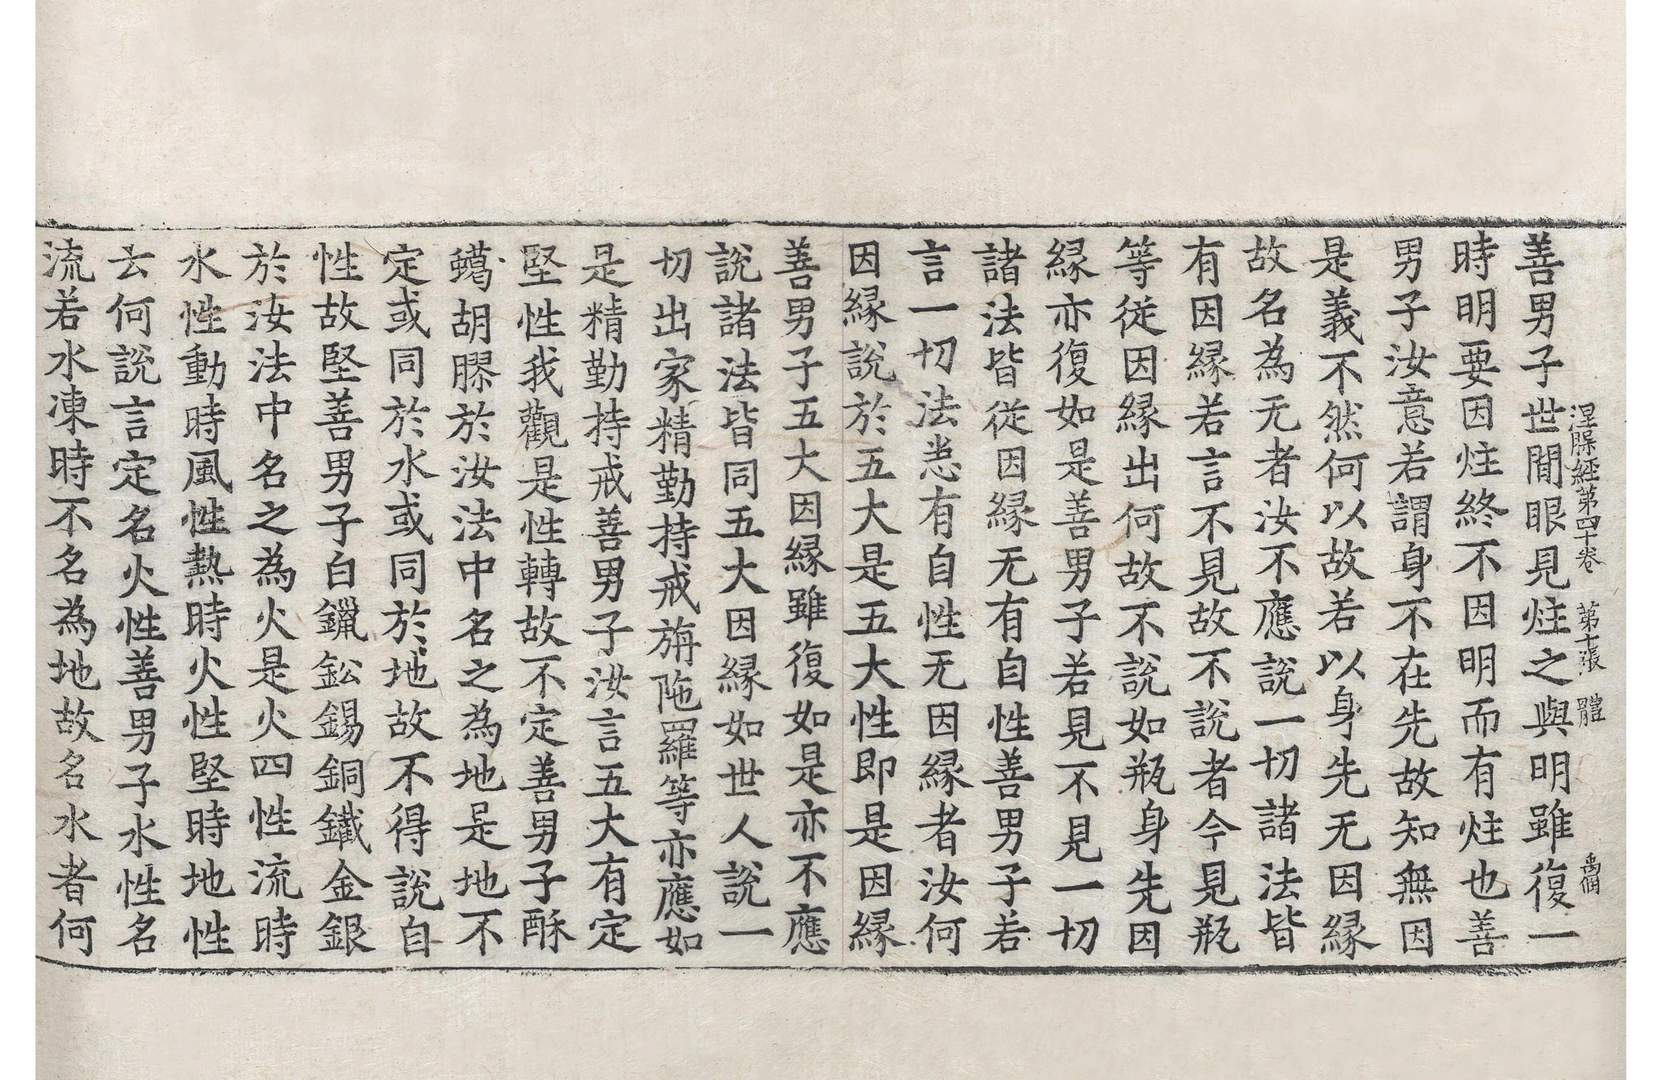 善男子世閒眼見炷之與明雖復一
涅槃經第四十卷 第十張 體
時明要因炷終不因明而有炷也善
男子汝意若謂身不在先故知無因
是義不然何以故若以身先无因縁
故名為无者汝不應說一切諸法皆
有因縁若言不見故不說者今見瓶
等從因縁出何故不說如瓶身先因
縁亦復如是善男子若見不見一切
諸法皆從因縁无有自性善男子若
言一切法悉有自性无因縁者汝何
因縁說於五大是五大性即是因縁
善男子五大因縁雖復如是亦不應
說諸法皆同五大因縁如世人說一
切出家精勤持戒旃陁羅等亦應如
是精勤持戒善男子汝言五大有定
堅性我觀是性轉故不定善男子酥
蠟胡膠於汝法中名之為地是地不
定或同於水或同於地故不得說自
性故堅善男子白鑞鈆錫銅鐵金銀
於汝法中名之為火是火四性流時
水性動時風性熱時火性堅時地性
云何說言定名火性善男子水性名
流若水凍時不名為地故名水者何